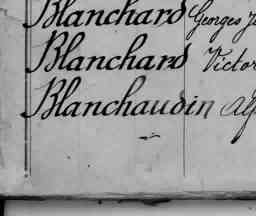 Blanchard Georges
Blanchard Victor
Blanchaudin